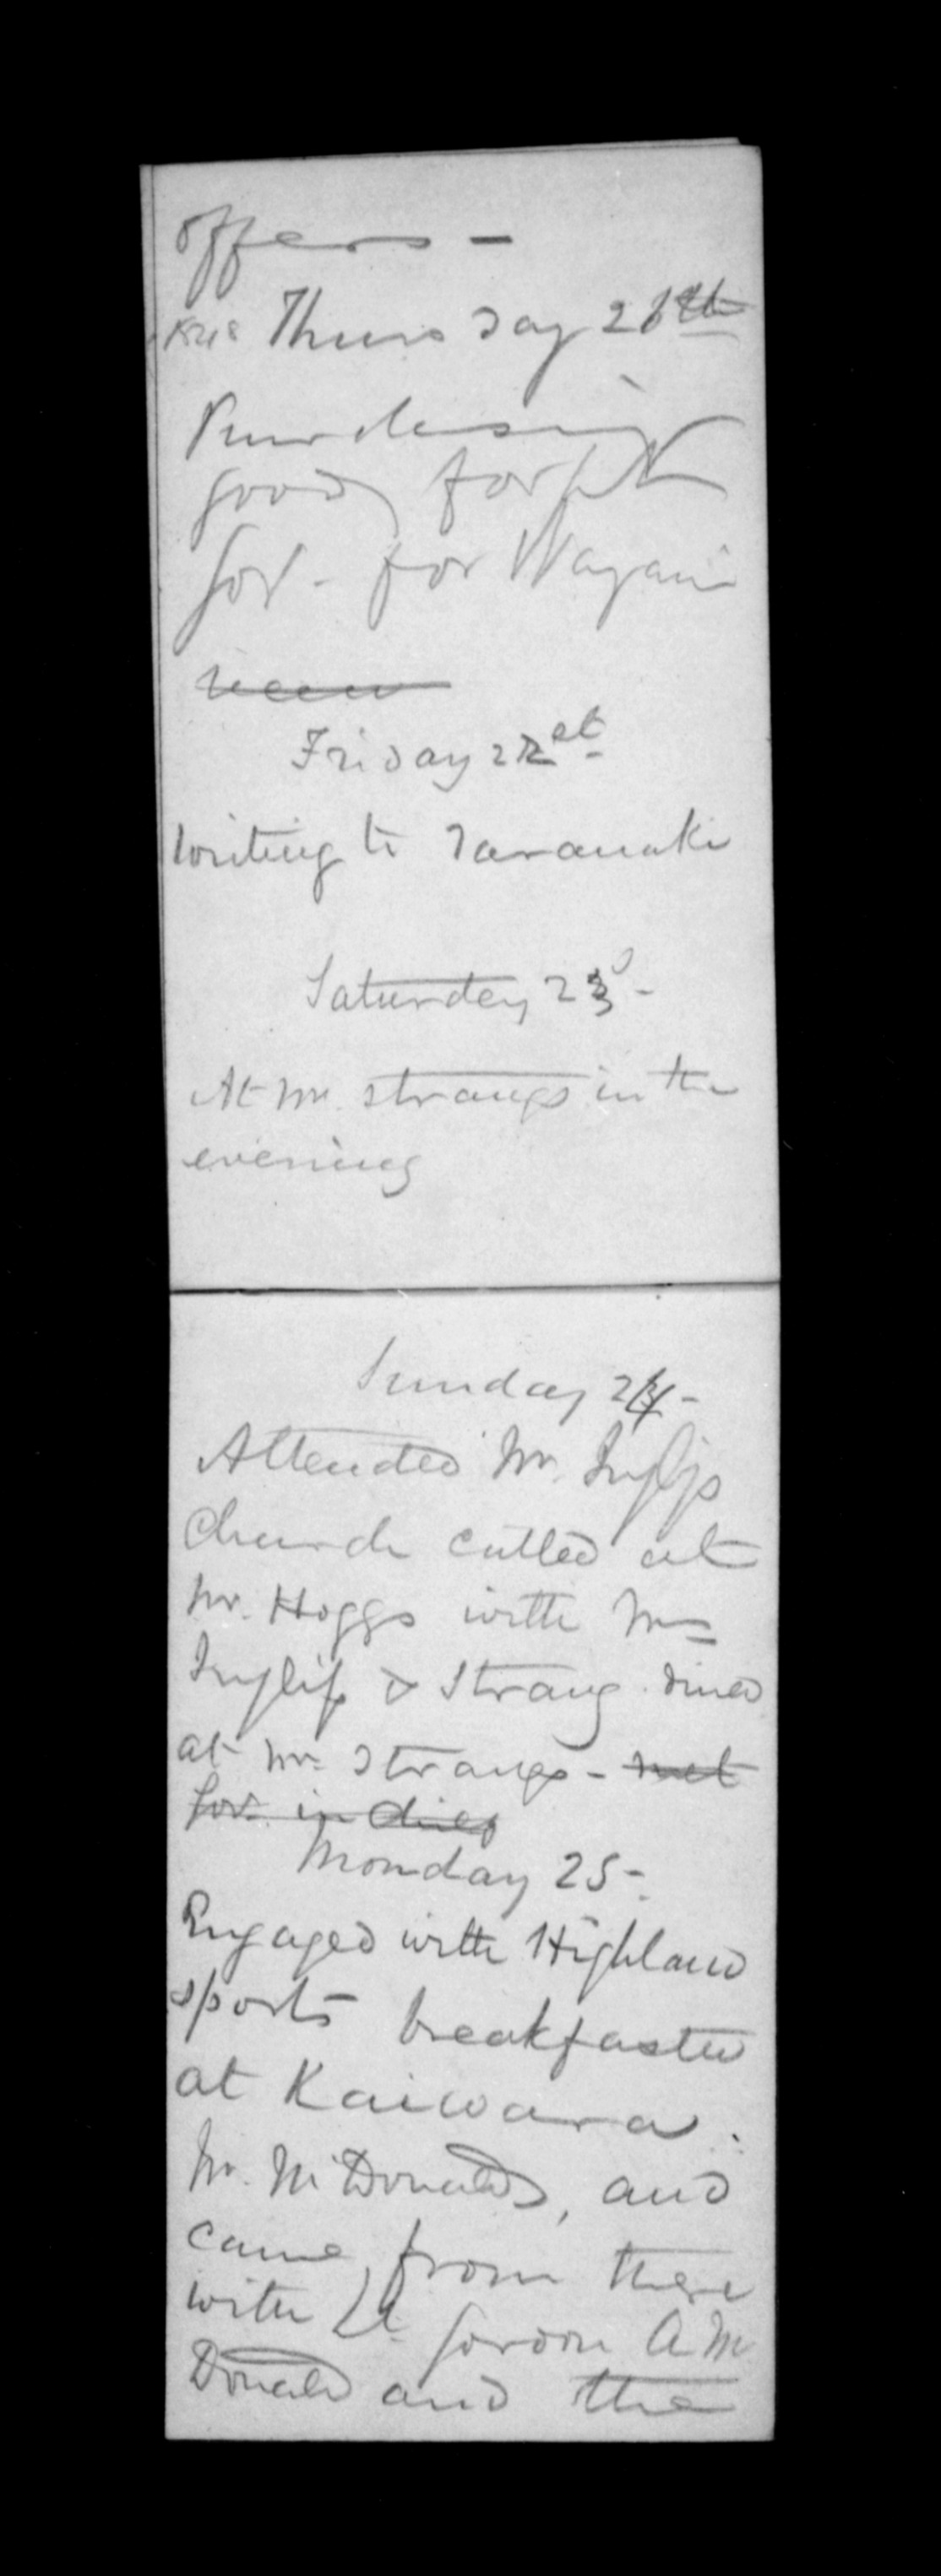 offers -
1848 Thursday 21th
Purchasing
goods for Lt
Gov. for Waganui
Friday 22et
writing to Taranaki
Saturday 23d -
At Mr. Strangs in the
evening
Sunday 24 -
Attended Mr. Inglis
Church called at
Mr. Hoggs with Mrs
Inglis & Strang. dined
at Mr. Strangs - met
Gov. in dies
Monday 25 -
Engaged with Highland
sports breakfasted
at Kaiwara.
Mr. McDonalds, and
came from there
with Lt. Gordon A Mc
Donald and the